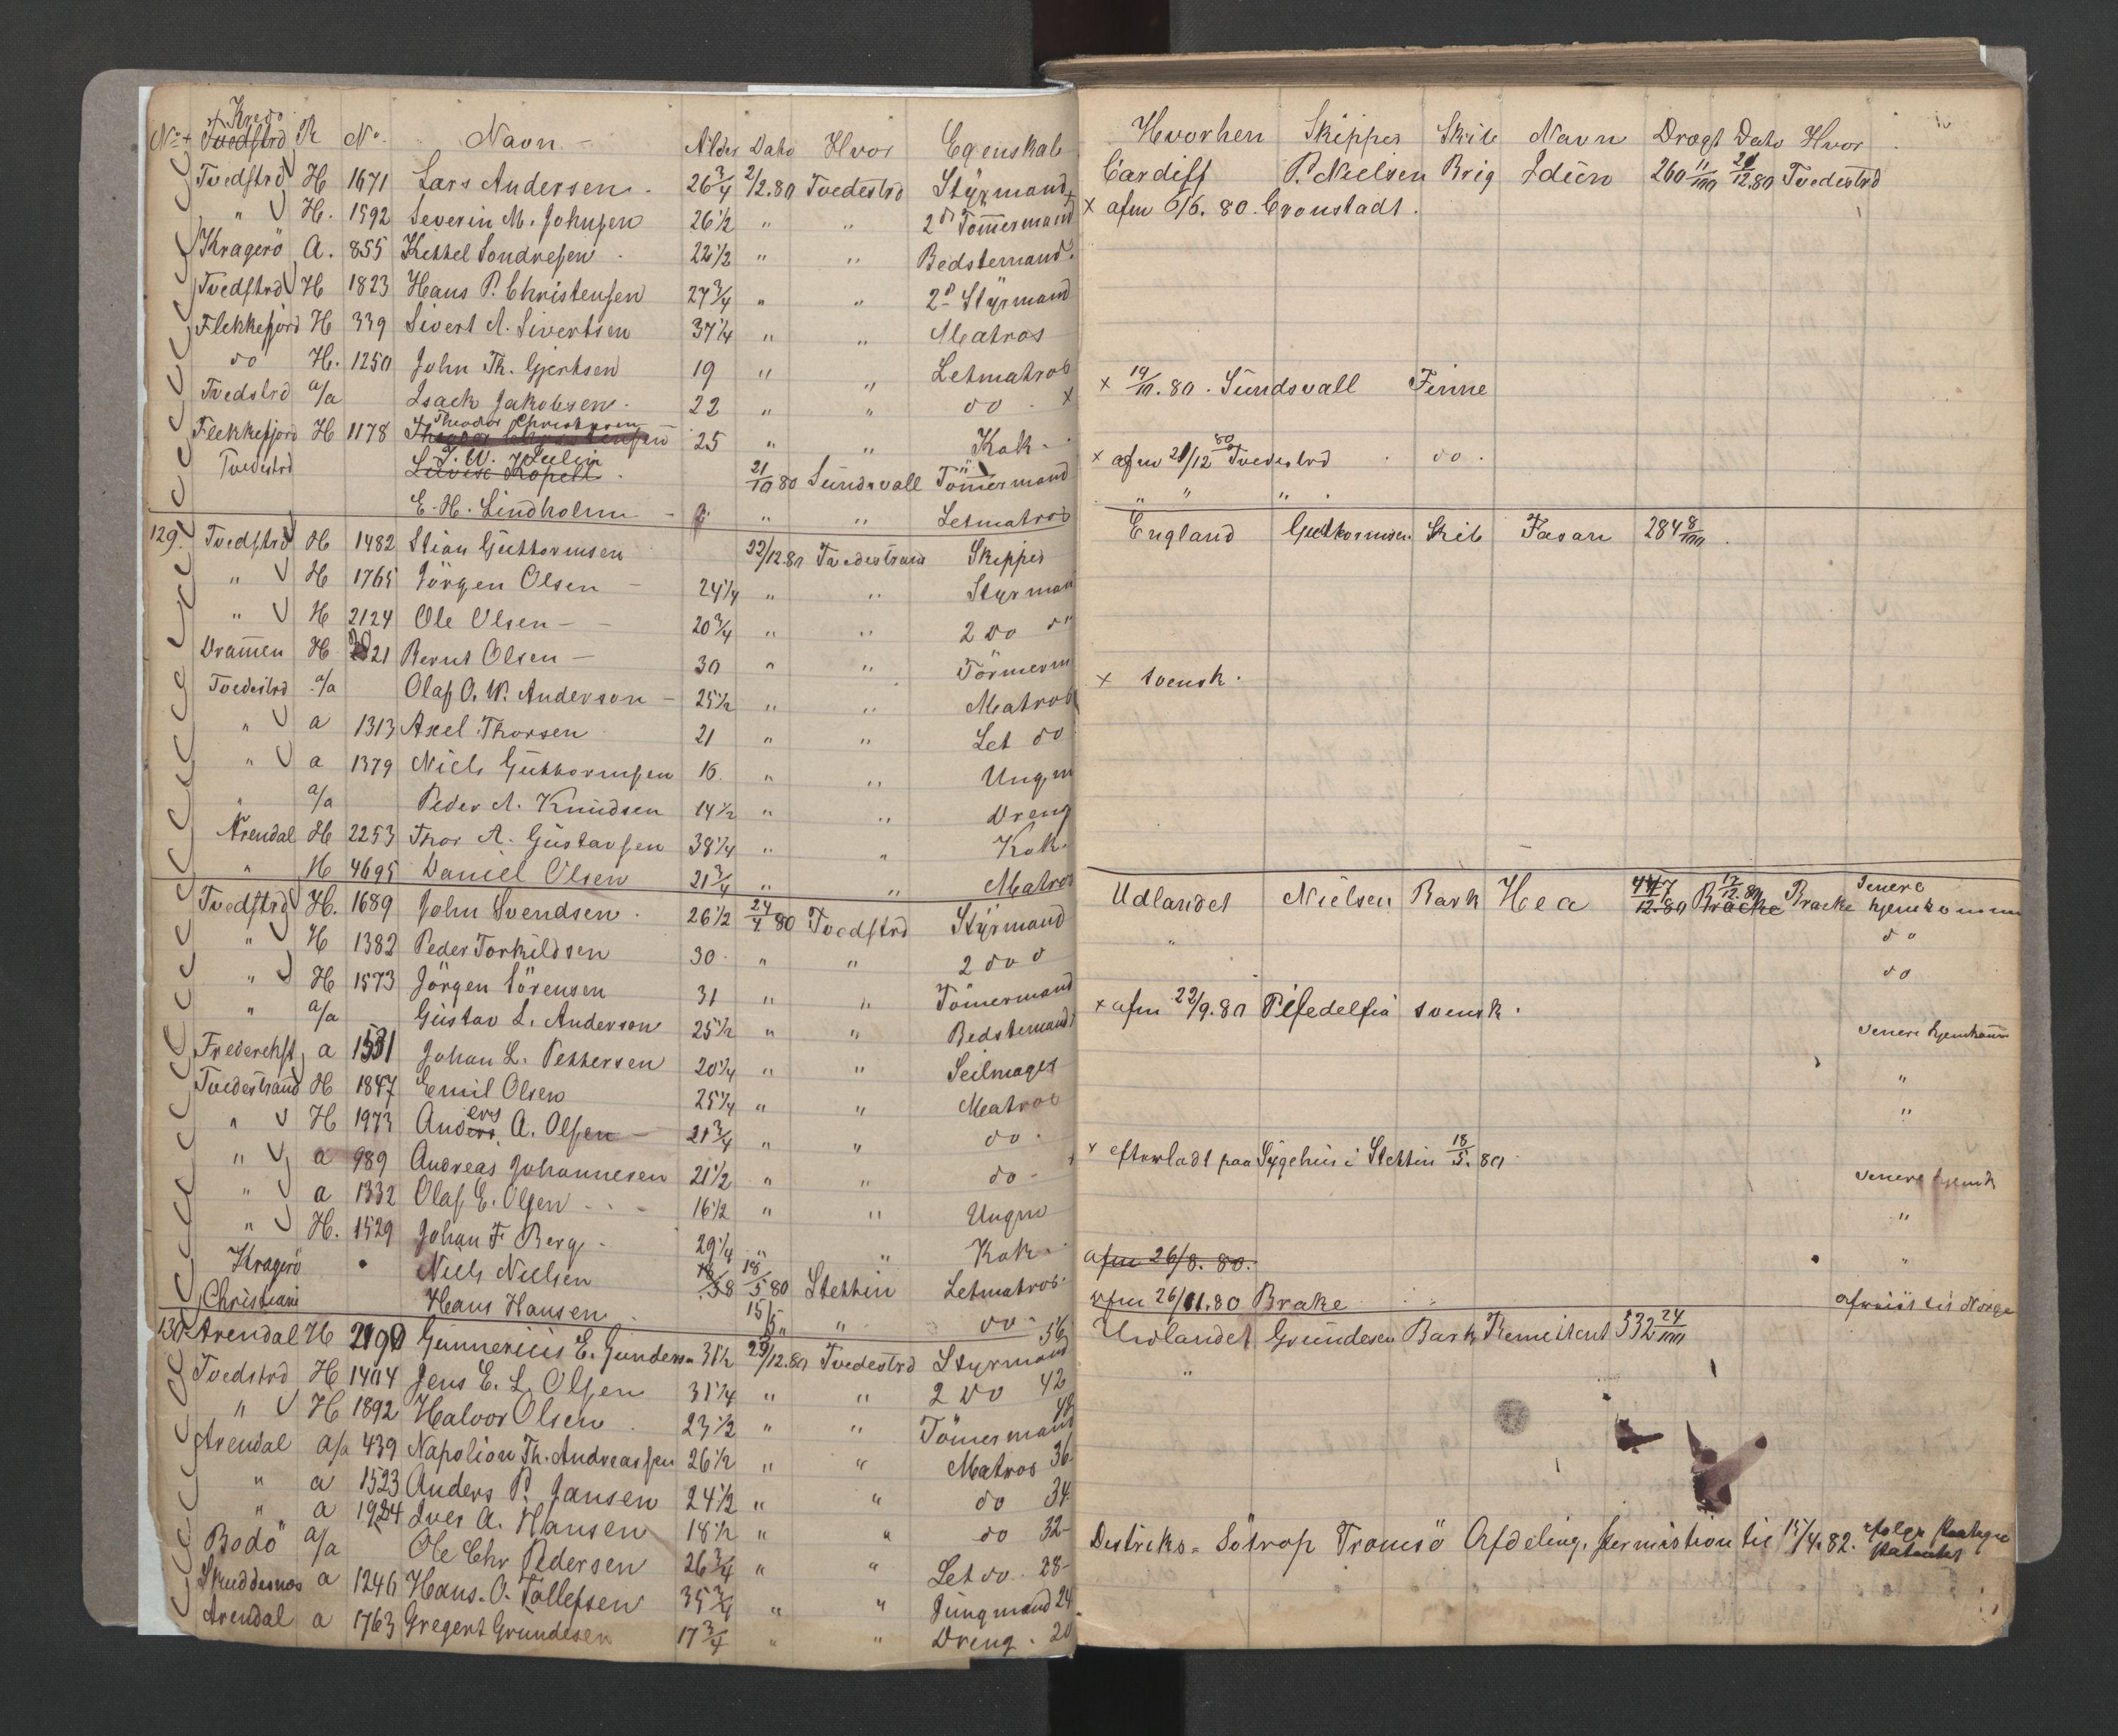 No Kreds Tvedstrd R No. Navn Alder Dato Hvor Egenskab
Tvedstrd H 1671 Lars Andersen. 26 3/4 2/12.80 Tvedestrd Styrmand
" H. 1592 Severin M. Johnsen 26 1/2 " " 2d Tömmermand
Kragerö A. 855 Kettel Sondresen 22 1/2 " " Bedstemand.
Tvedstrd H 1823 Hans P. Christensen 27 3/4 " " 2d Styrmand
Flekkefjord H 339 Sivert A. Sivertsen 37 1/4 " " Matros
do H. 1250 John Th. Gjertsen 19 " " Letmatros
Tvedstrd a/a Isack Jakobsen. 22 " " do x
Flekkefjord H 1178 Theodor Christensen 25 " " Kok.
Tvedestrd J. W. Julin 21/10 80 Sundsvall Tömmermand
E. H. Lindholm " " Letmatros
129. Tvedstrd H 1482 Stian Guttormsen 22/12.80 Tvedestrand Skipper
" H 1765 Jörgen Olsen 24 1/4 " " Styrman
" H 2124 Ole Olsen 20 3/4 " " 2 do do
Drammen H 2021 Bernt Olsen 30 " " Tömmerm
Tvedestrd a/a Olaf O. W. Anderson 25 1/2 " " Matros
" a 1313 Axel Thorsen 21 " " Let do
" a 1379 Niels Guttormsen 16. " " Ungm
" a/a Peder A. Knudsen 14 1/2 " " Dreng
Arendal H 2253 Thor A. Gustavsen 38 1/4 " " Kok.
" H 4695 Daniel Olsen 21 3/4 " " Matros
Tvedstrd H. 1689 John Svendsen. 26 1/2 24/4 80 Tvedstrd Styrmand
" H 1382 Peder Torkildsen 30. " " 2 do d
" H 1573 Jörgen Sörensen 31 " " Tömermand
" a/a Gustav L. Anderson 25 1/2 " " Bedstemand
Frederchst a 1531 Johan L. Pettersen 20 1/4 " " Seilmager
Tvedestrand H 1847 Emil Olsen 25 1/4 " " Matros
" H 1973 Anders A. Olsen 21 3/4 " " do.
" a 989 Andreas Johannesen 21 1/2 " " do
" a 1332 Olaf E. Olsen 16 1/2 " " Ungm
" H. 1529 Johan F Berg 29 1/4 " " Kok.
Kragerö Niels Nielsen 18/5 80 Stettin Letmatros.
Christiani Hans Hansen. 15/5 " " do.
130 Arendal H 2190 Gunnerius E. Gunders 31 1/2 23/12.80 Tvedestrd Styrmand 56
Tvedstrd H 1404 Jens E. L. Olsen 31 1/4 " " 2 do 42
" H 1892 Halvor Olsen 23 1/2 " " Tömermand 48
Arendal a/a 439 Napolion Th. Andreassen 26 1/2 " " Matros 36
" a 1523 Anders P. Jansen 24 1/2 " " do 34.
" a 1924 Iver A. Hansen 18 1/2 " " do 32
Bodö a/a Ole Chr Pedersen 26 3/4 " " Let do. 28
Skuddesnæs a 1246 Hans. O. Tollefsen 35 3/4 " " Jungmand 24
Arendal a 1763 Gregert Grundesen 17 3/4 " " Dreng. 20
Hvorhen Skipper Skib Navn Drægt Dato Hvor
Cardiff P. Nielsen Brig Idien 260 11/100 21/12.80 Tvedestrd
x afm 6/6. 80. Cronstadt.
x 19/10. 80. Sundsvall Finne
x afm 21/12 80 Tvedestrd do.
" " "
England Guttormsen Skib Fasan 284 8/100.
x svensk.
Udlandet Nielsen Bark Hea 447 12.80 Bracke 17/12.80 Bracke senere hjemkommen
" do
do
x afm 22/9.80 Pifedelfia svensk.
senere hjemkomm
"
"
x efterladt paa Sygehus i Stettin 18/5. 80
senere hjemk
"
afm 26/8. 80. "
afm 26/11.80 Brake " afreist til Norge
Udlandet Grundesen Bark Remitent 532 24/100
"
Distriks= Sötrop Tromsö Afdeling. permistion til 15/4.82.